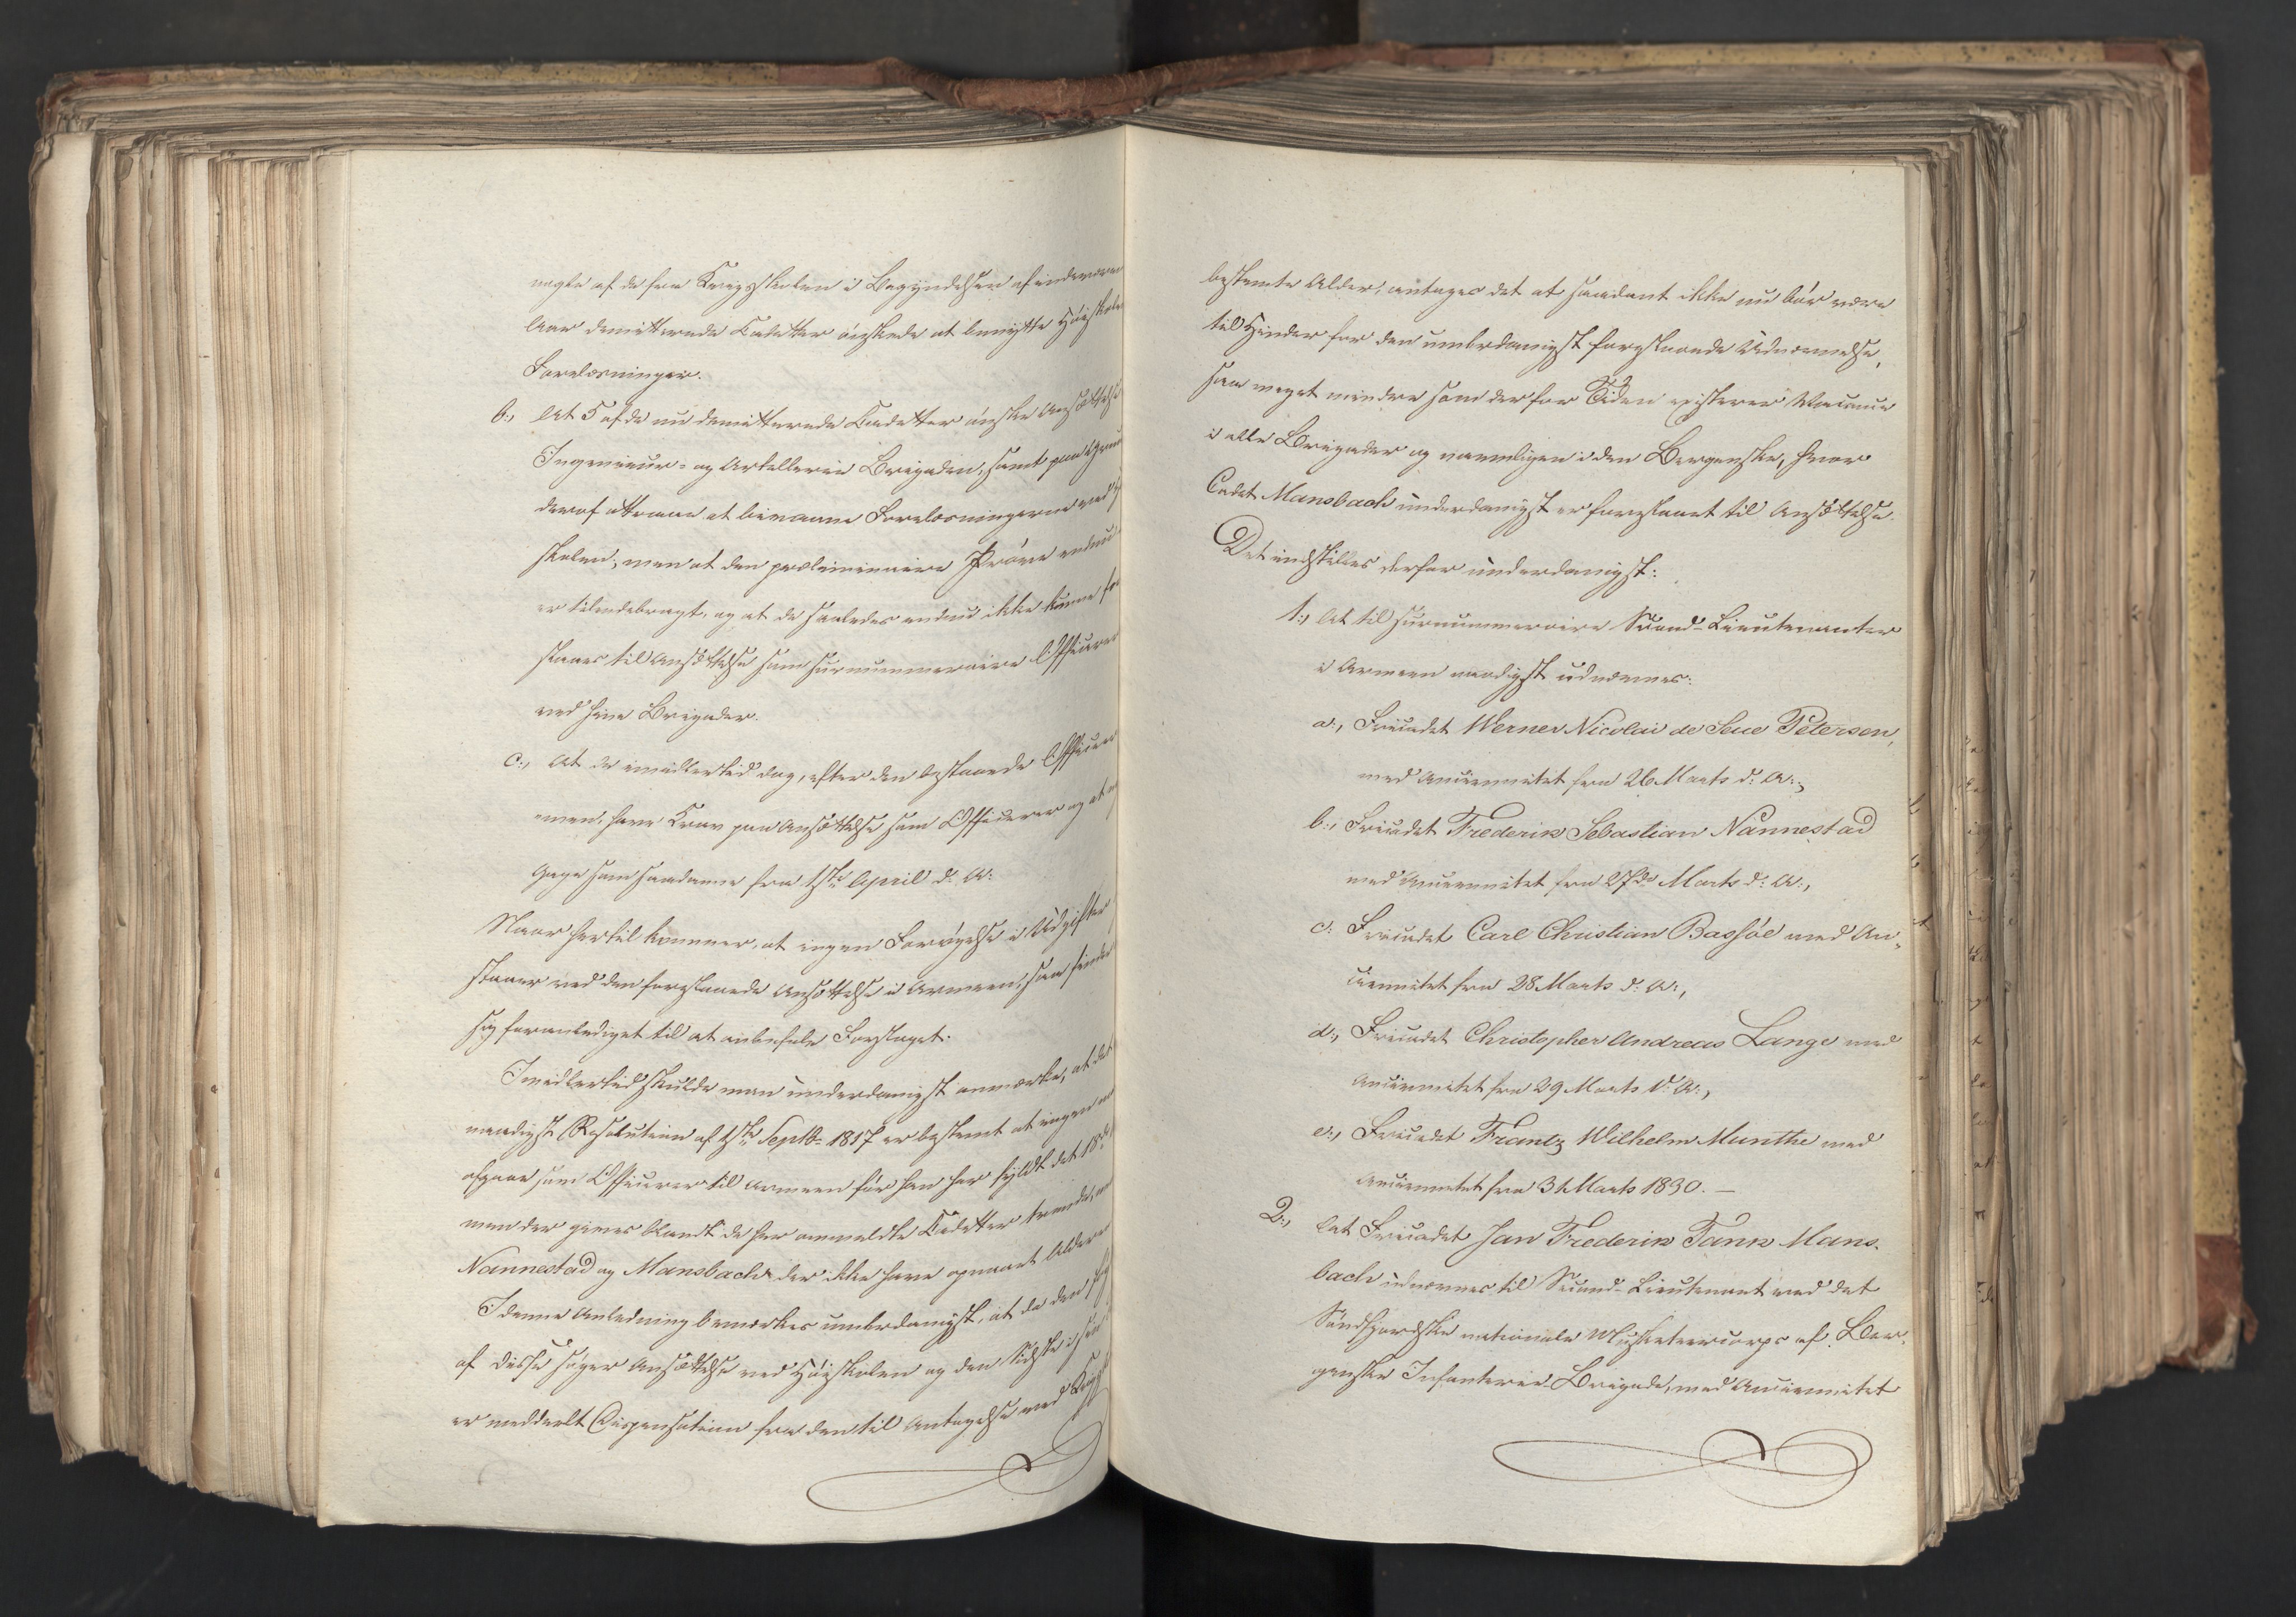 nogle af de fra Krigsskolen i Begyndelsen af indeværen
Aar demitterede Cadetter ønskede at benytte Høiskolen
Forelæsninger.
b., At 5 af de nu demitterede Cadetter ønske Ansættelse
Ingenieur- og Artillerie Brigaden, samt paa Grund
deraf attraae at bivaane Forelæsningerne ved
skolen, men at den præliminaire Prøve endnu
er tilendebragt, og at de saaledes endnu ikke kunne fore
slaaes til Ansættelse som surnummeraire Officierer
ved hine Brigader.
c., At de imidlertid dog, efter den bestaaede Officier
amen, have Krav paa Ansættelse som Officierer og at
Gage som saadanne fra 1ste April d: A:
Naar hertil kommer, at ingen Forøgelse i Udgifter
staaer ved den foreslaaede Ansættelse i Armeen, saa finder
sig foranlediget til at anbefale Forslaget.
Imidlertid skulde man underdanigst anmærke, at det
naadigst Resolution af 1ste Septbr 1817 er bestemt at ingen
afgaae som Officierer til Armeen før han har fyldt det 18de
men der gives blandt de her anmeldte Cadetter tvende,
Nannestad og Mansbach der ikke have opnaaet Alderen
I denne Anledning bemærkes underdanigst, at da den
af disse søger Ansættelse ved Høiskolen og den Sidste i sin
er meddeelt Dispensation fra den til Antagelse ved Krigs
bestemte Alder, antages det at saadant ikke nu bør være
til Hinder for den underdanigst foreslaaede Udnævnelse,
saa meget mindre som der for Tiden existerer Vacance
i alle Brigader og navnligen i den Bergenske, hvor
Cadet Mansbach underdanigst er foreslaaet til Ansættelse.
Det indstilles derfor underdanigst:
1., At til surnummeraire Second-Lieutenanter
i Armeen naadigst udnævnes:
a., Fricadet Werner Nicolai de Seue Petersen,
med Anciennitet fra 26 Marts d: A:,
b., Fricadet Frederik Sebastian Nannestad
med Anciennitet fra 27de Marts d: A:,
c. Fricadet Carl Christian Bassøe med An-
ciennitet fra 28 Marts d: A:,
d., Fricadet Christopher Andreas Lange med
Anciennitet fra 29 Marts d: A:,
e., Fricadet Frantz Wilhelm Munthe med
Anciennitet fra 31 Marts 1830. —
2., At Fricadet Jan Frederik Tank Mans-
bach udnævnes til Second-Lieutenant ved det
Søndfjordske nationale Musketeercorps af Ber-
genske Infanterie-Brigade, med Anciennitet